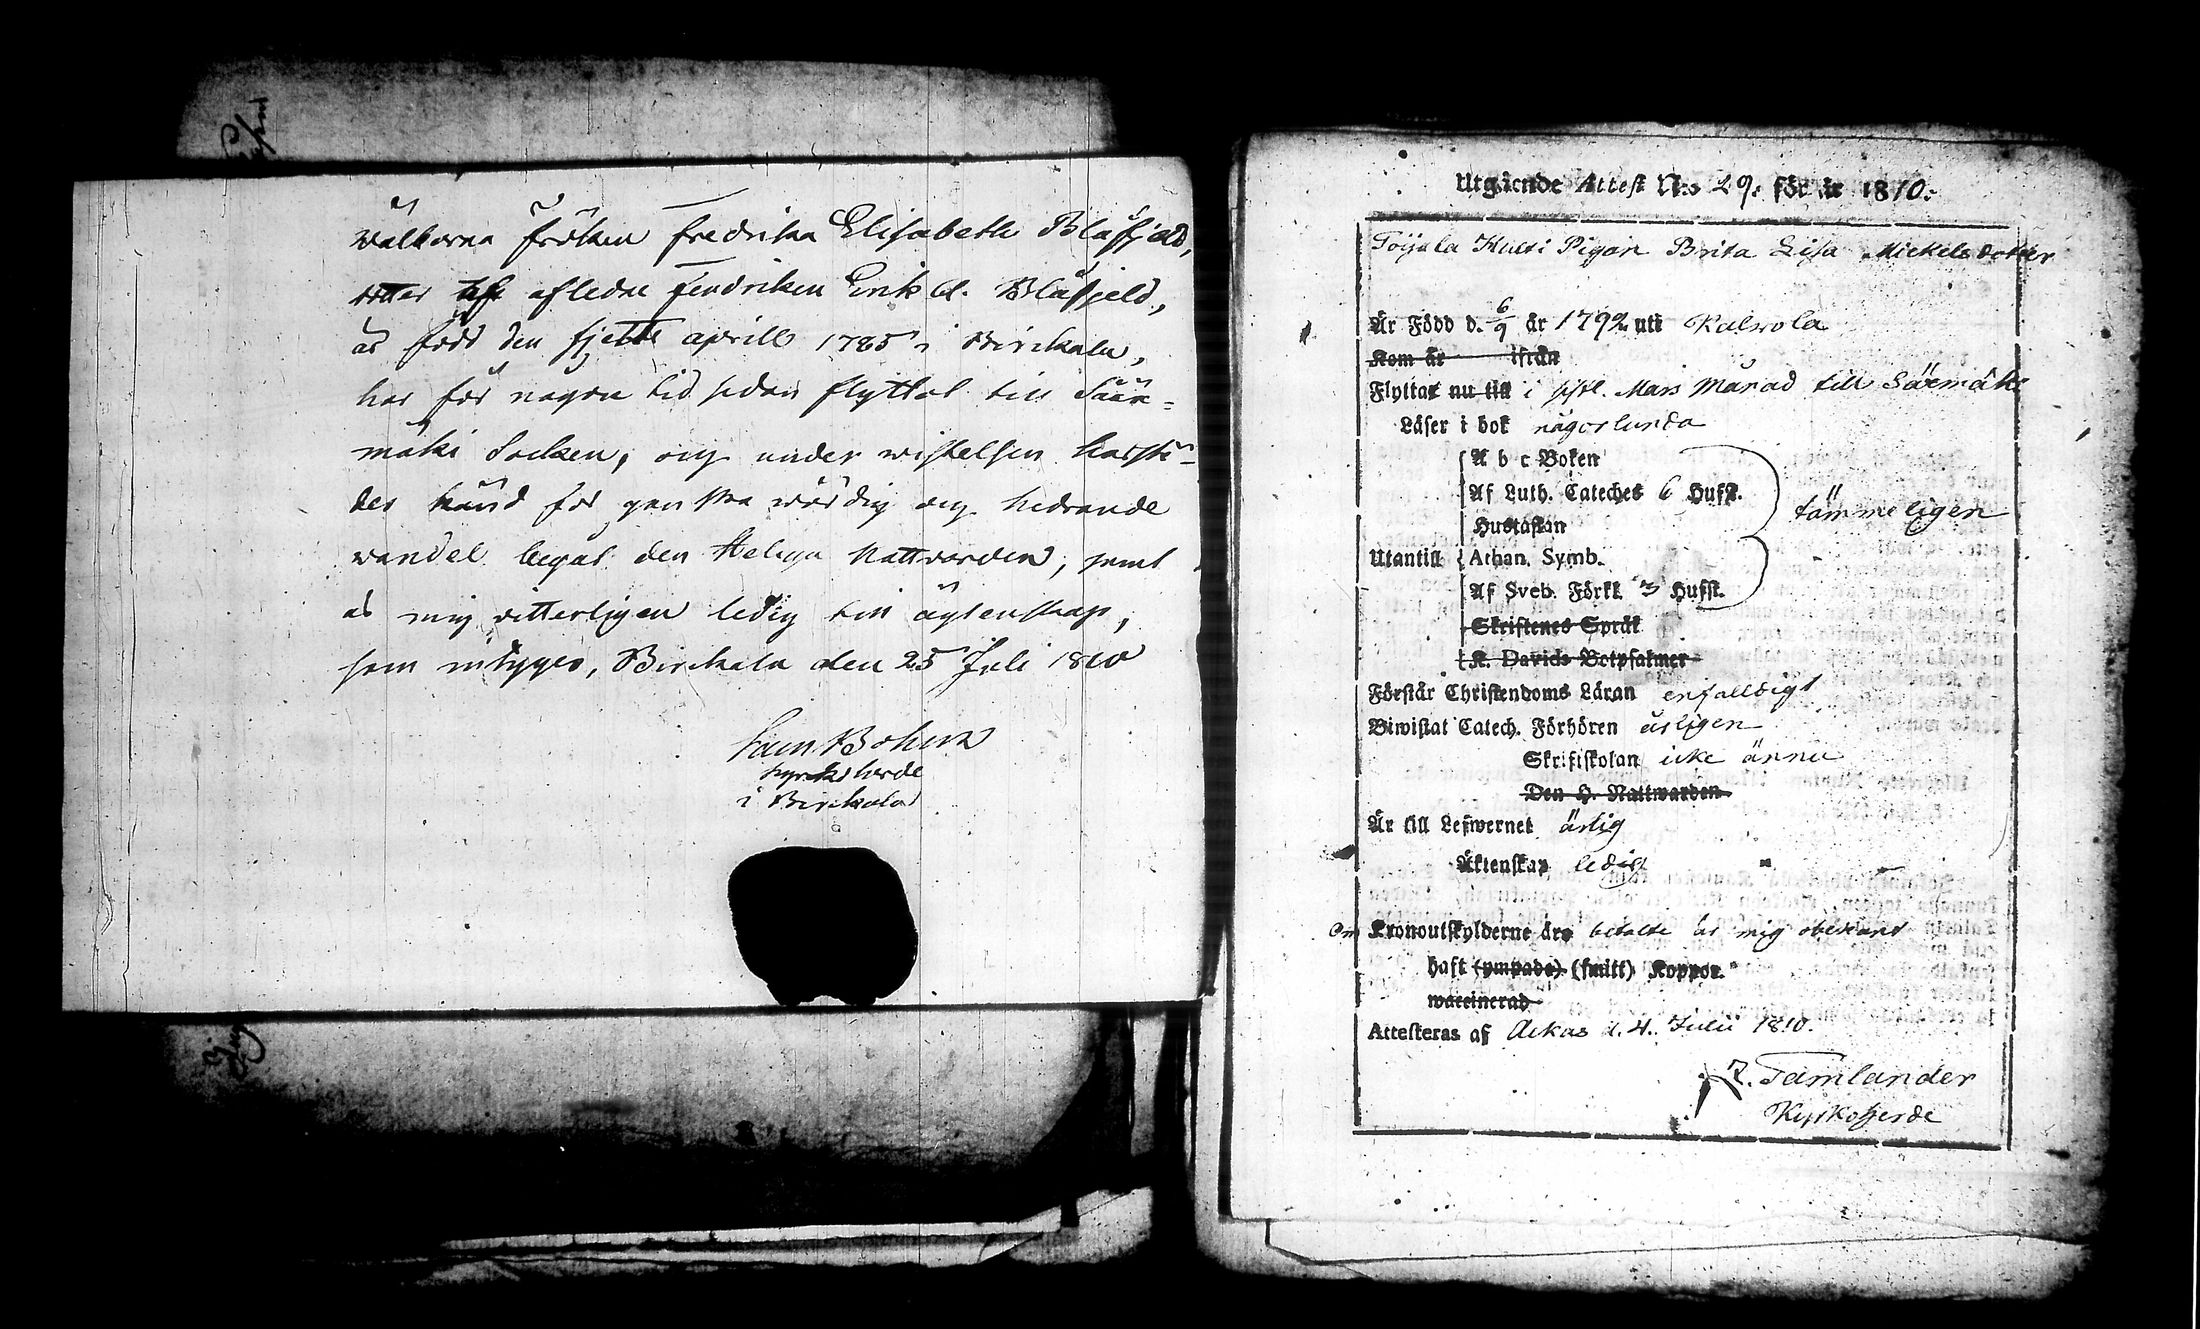 Wälborna Fröken Fredrika Elisabeth Blåfjeld,
dotter af afledne Fendriken Erik A. Blåfjeld,
är född den sjette aprill 1785 i Birckala,
har för någon tid sedan flyttat till Sääx-
mäki Socken, under wistelsen härstä-
des känd för ganska wördig hedrande
wandel begåt den Heliga Nattvarden, samt
är mig witterligen ledig till ägtenskap,
som intygas, Birckala den 25 Juli 1810
Sam Bohm
Kyrkoherde
i Birckala
Utgående Attest N:o 29. för år 1810.
Toijala Hulti Pigan Brita Lisa Mickelsdotter
Är Född d. 6/9 år 1792 uti Kalvola
Kom år ifrån
Flyttat nu till i sistl. Mars Månad till Säxmäki
Läser i bok någorlunda
A b c Boken
Af Luth. Cateches 6 Hufst.
Hustaflan
tämmeligen
Utantill Athan. Symb.
Af Sveb. Förkl. 3 Hufst.
Skriftenes Språk
K. Davids Botpsalmer
Förstår Christendoms Läran enfalldigt
Biwistat Catech. Förhören årligen
Skriftskolan icke ännu
Den H. Nattwarden
Är till Lefwernet ärlig
Äktenskap ledig
Om Kronoutskylderne äro betalte är mig obekant
haft (ympade) (smitt) Koppor
waccinerad
Attesteras af Ackas d. 4. Julii 1810.
Tamlander
Kyrkoherde